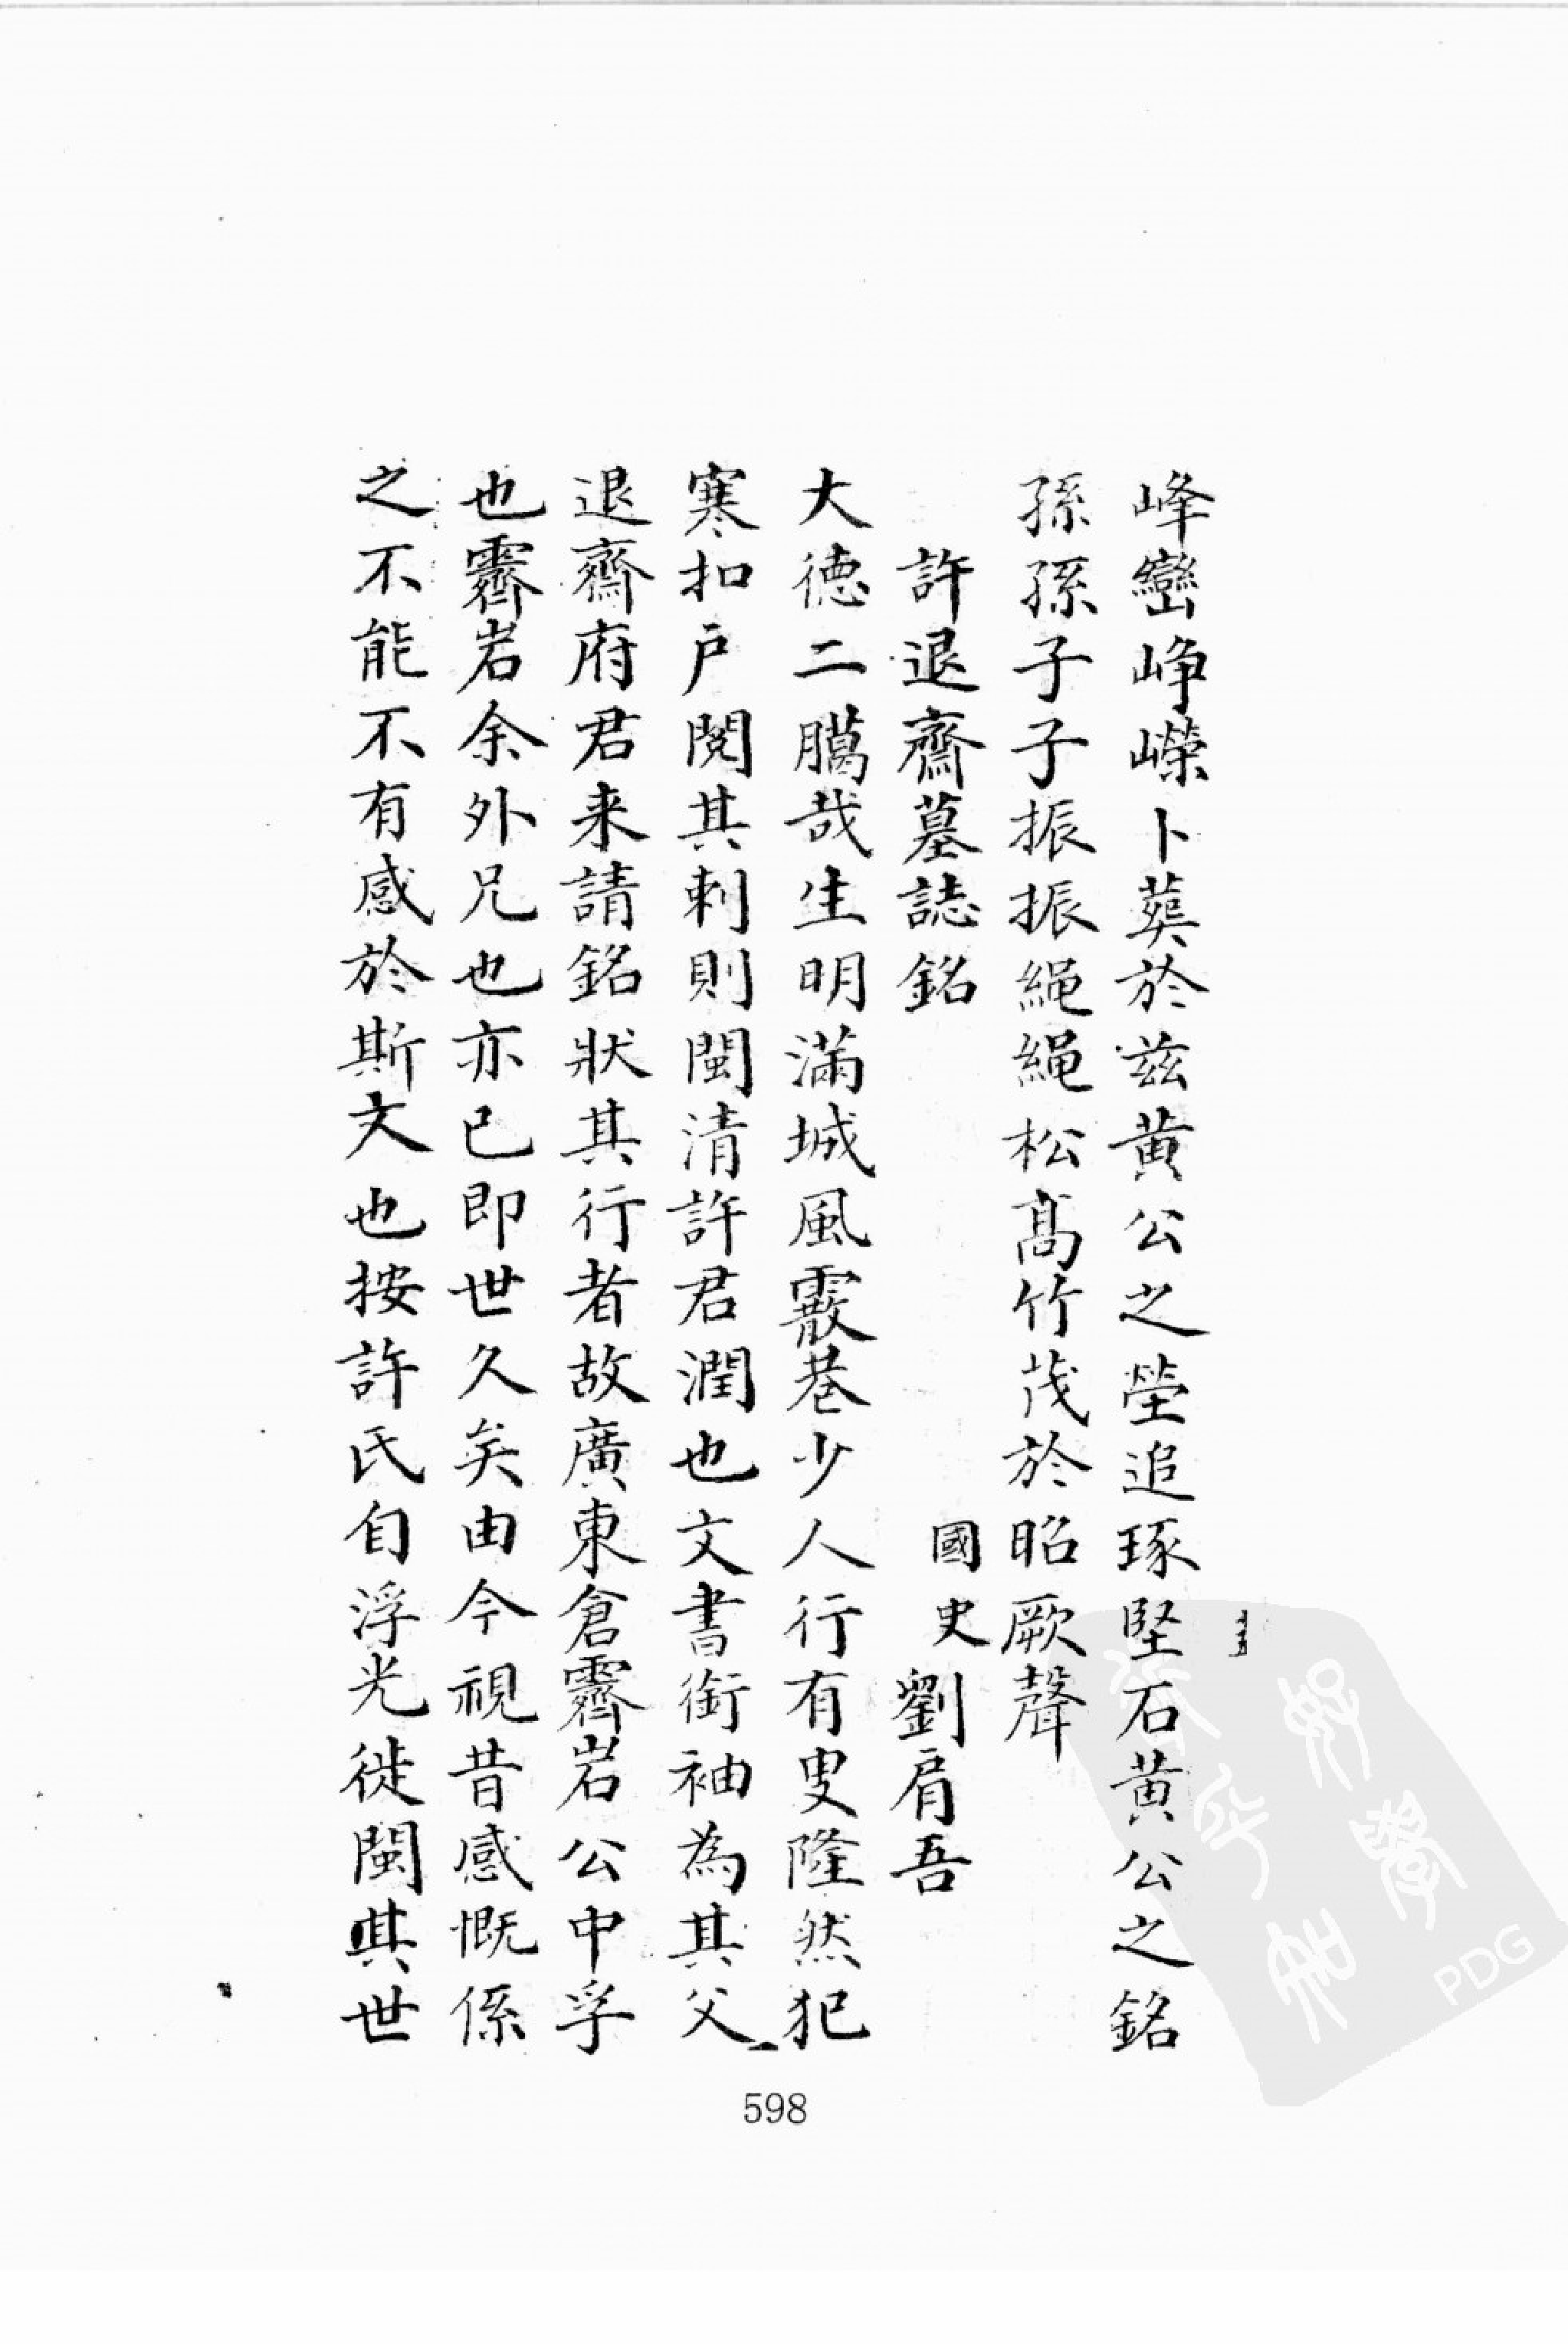 峰巒崢嶸卜葬於兹黄公之塋追琢堅石黄公之銘
孫孫子子振振繩繩松髙竹茂於昭厥聲
許退齋墓誌銘
國史劉肩吾
大德二臈哉生明滿城風霰巷少人行有叟隆然犯
寒扣戶閱其刺則閩清許君潤也文書銜袖為其父
退齋府君来請銘狀其行者故廣東倉霽岩公中孚
也霽岩余外兄也亦已即世久矣由今視昔感慨係
之不能不有感於斯文也按許氏自浮光徙閩其世
598
PDG